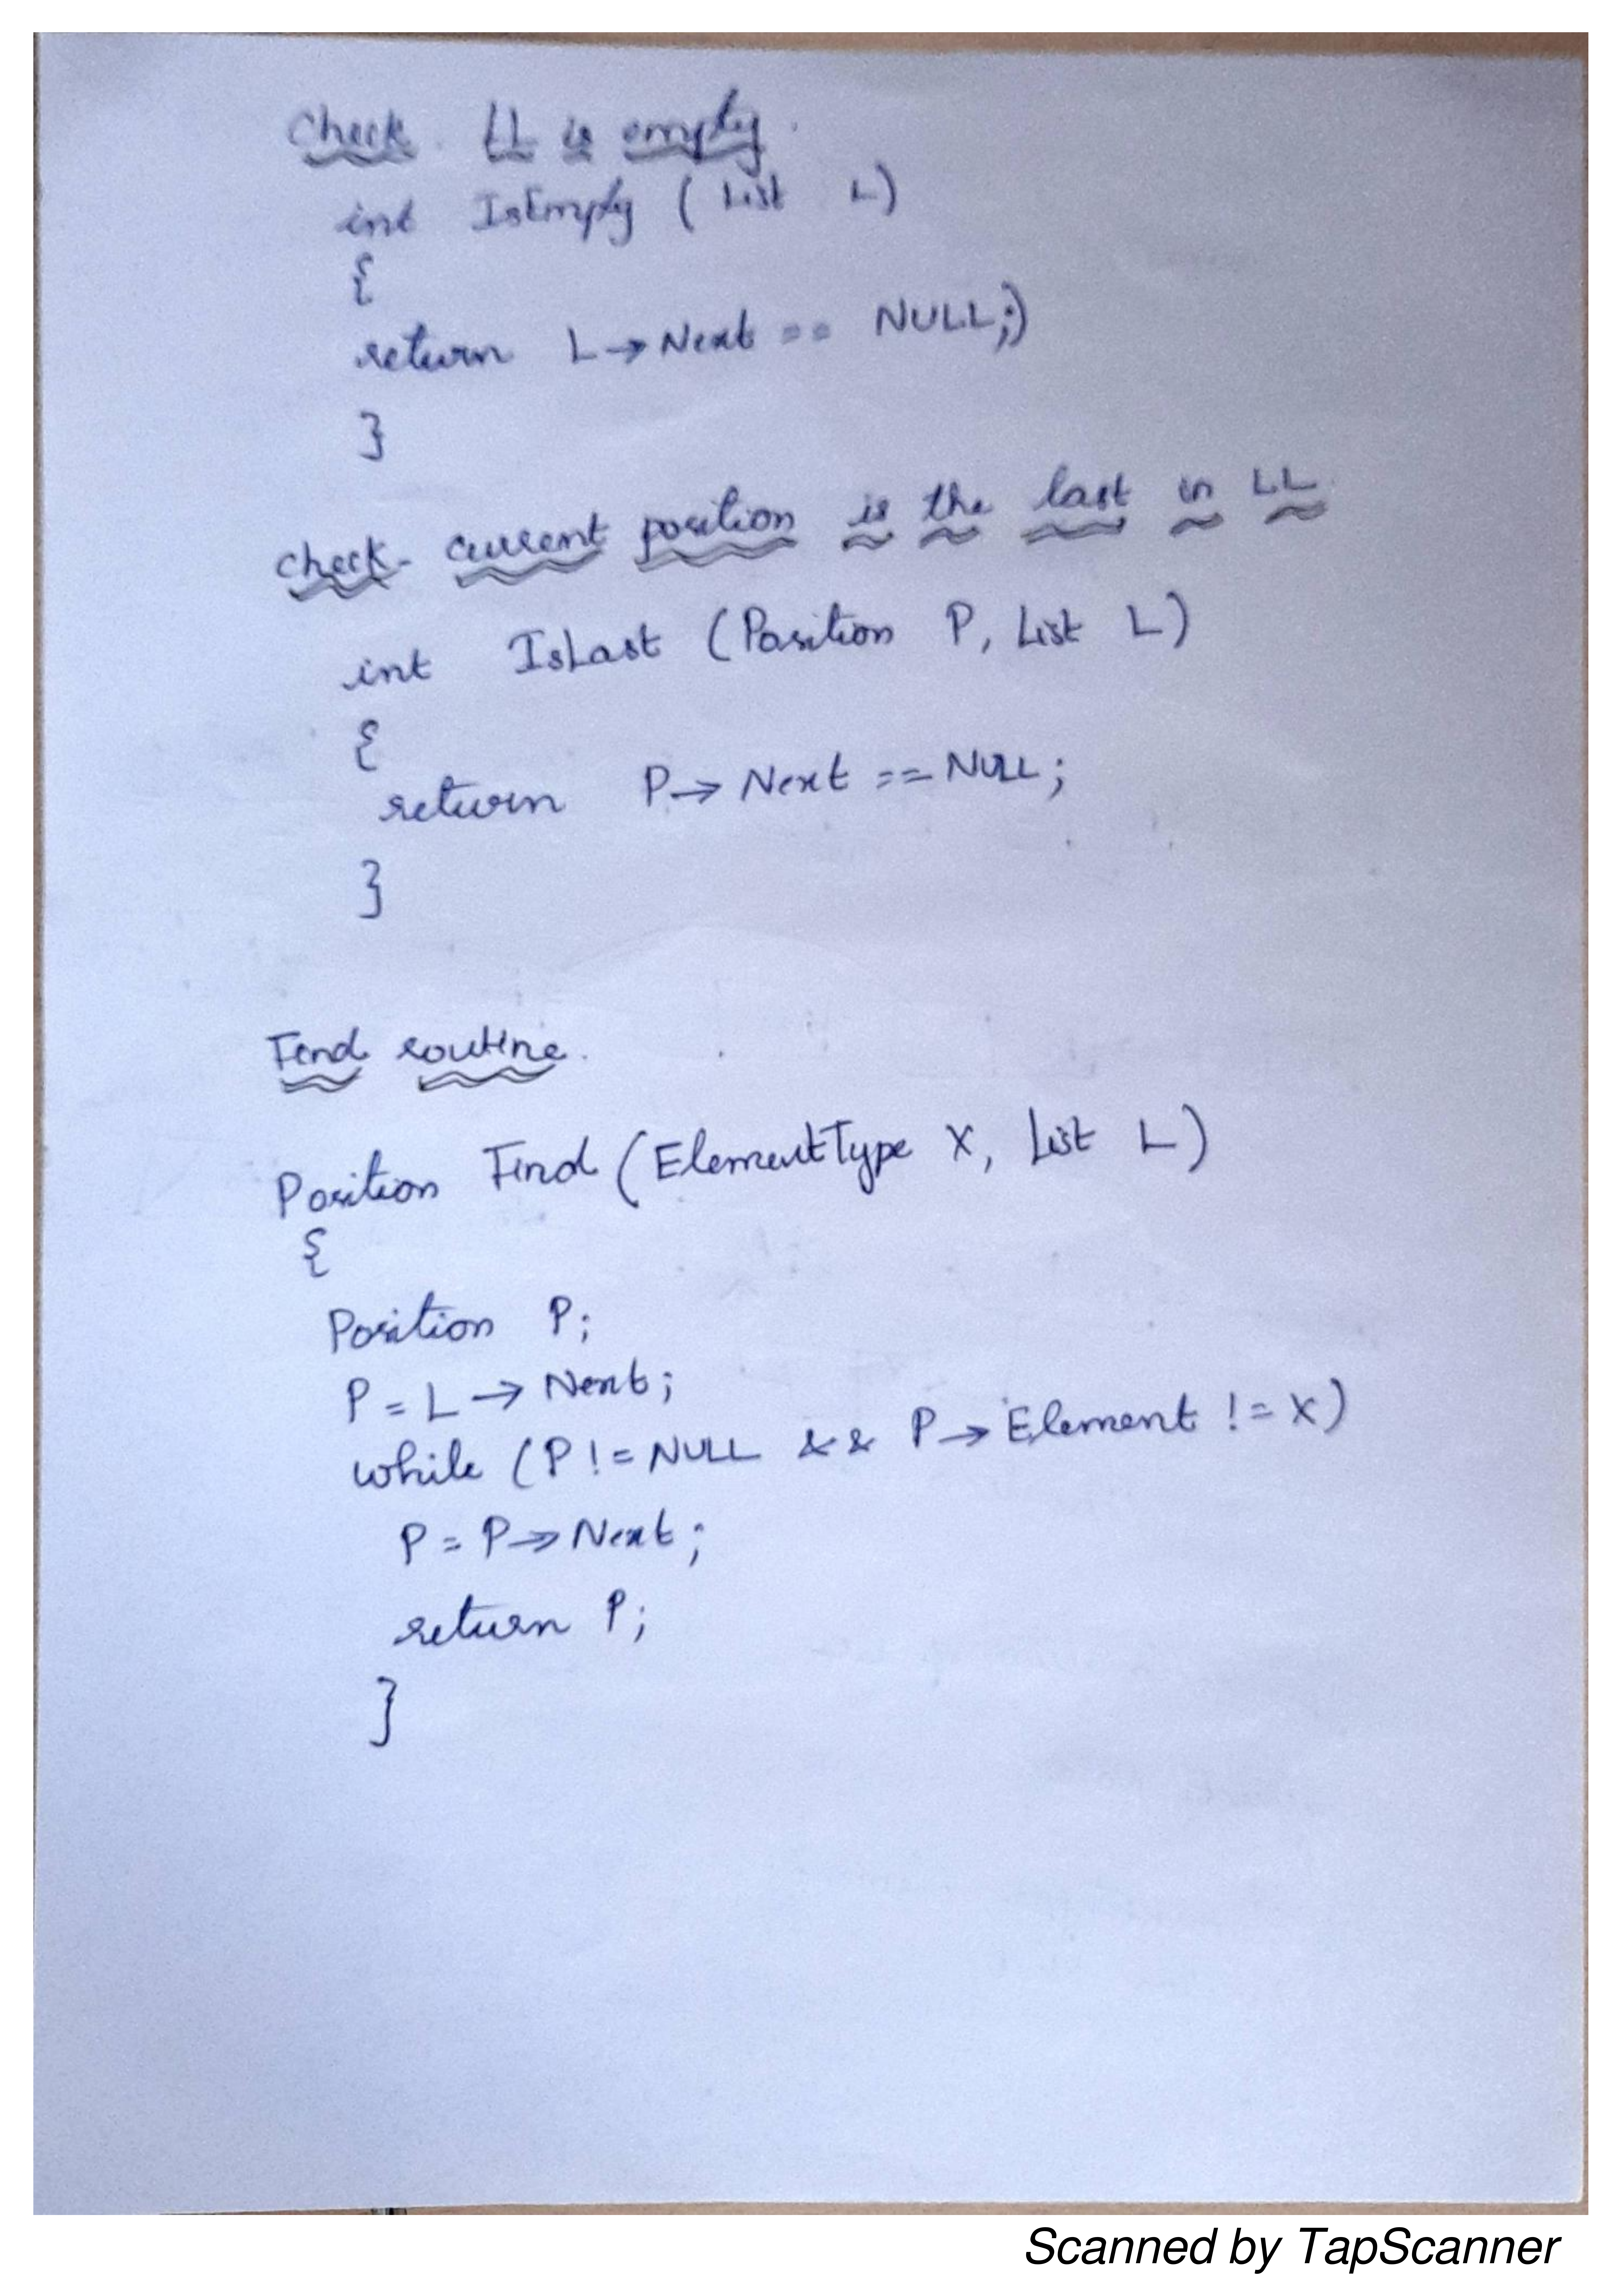 Check LL is empty.
int IsEmpty ( List L)
{
return L→Next == NULL;)
}
check current position is the last in LL
int IsLast (Position P, List L)
{
return P→Next == NULL;
}
Find routine.
Position Find (ElementType X, List L)
{
Position P;
P = L → Next;
while (P != NULL && P→Element != X)
P = P→Next;
return P;
}
Scanned by TapScanner